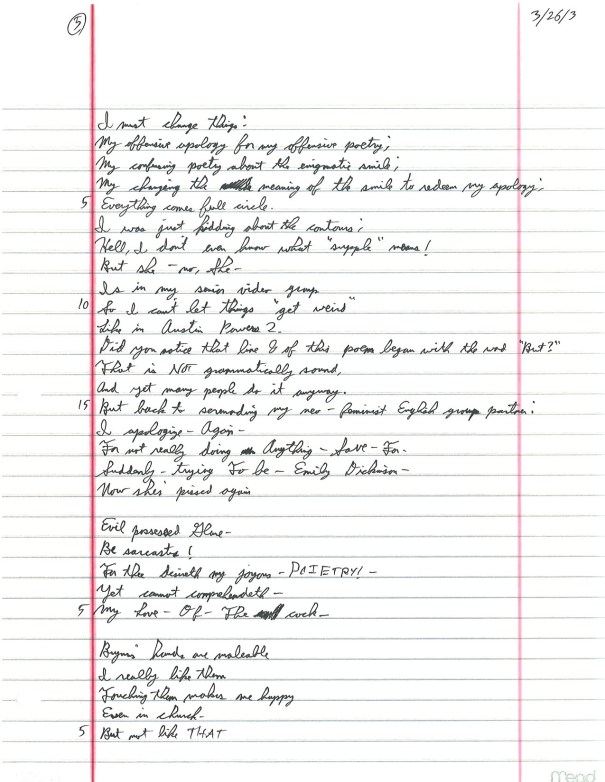 5
3/26/3
I must change things:
My offensive apology for my offensive poetry;
My confusing poetry about the enigmatic smile;
My changing the meaning of the smile to redeem my apology;
5 Everything comes full circle.
I was just kidding about the contours;
Hell, I don't even know what "supple" means!
But she - no, She -
Is in my senior video group
10 So I can't let things "get weird"
Like in Austin Powers 2.
Did you notice that line 8 of this poem began with the word "But?"
That is NOT grammatically sound,
And yet many people do it anyway.
15 But back to serenading my neo-feminist English group partner:
I apologize - Again -
For not really doing Anything - Save - For -
Suddenly - trying To be - Emily Dickinson -
Now she's pissed again
Evil possessed Glove -
Be sarcastic!
For thee
my joyous - POIETRY! -
Yet cannot comprehendeth -
5 My love - Of - The cock -
hands are maleable
I really like them
Touching them makes me happy
Even in church -
5 But not like THAT
Mead